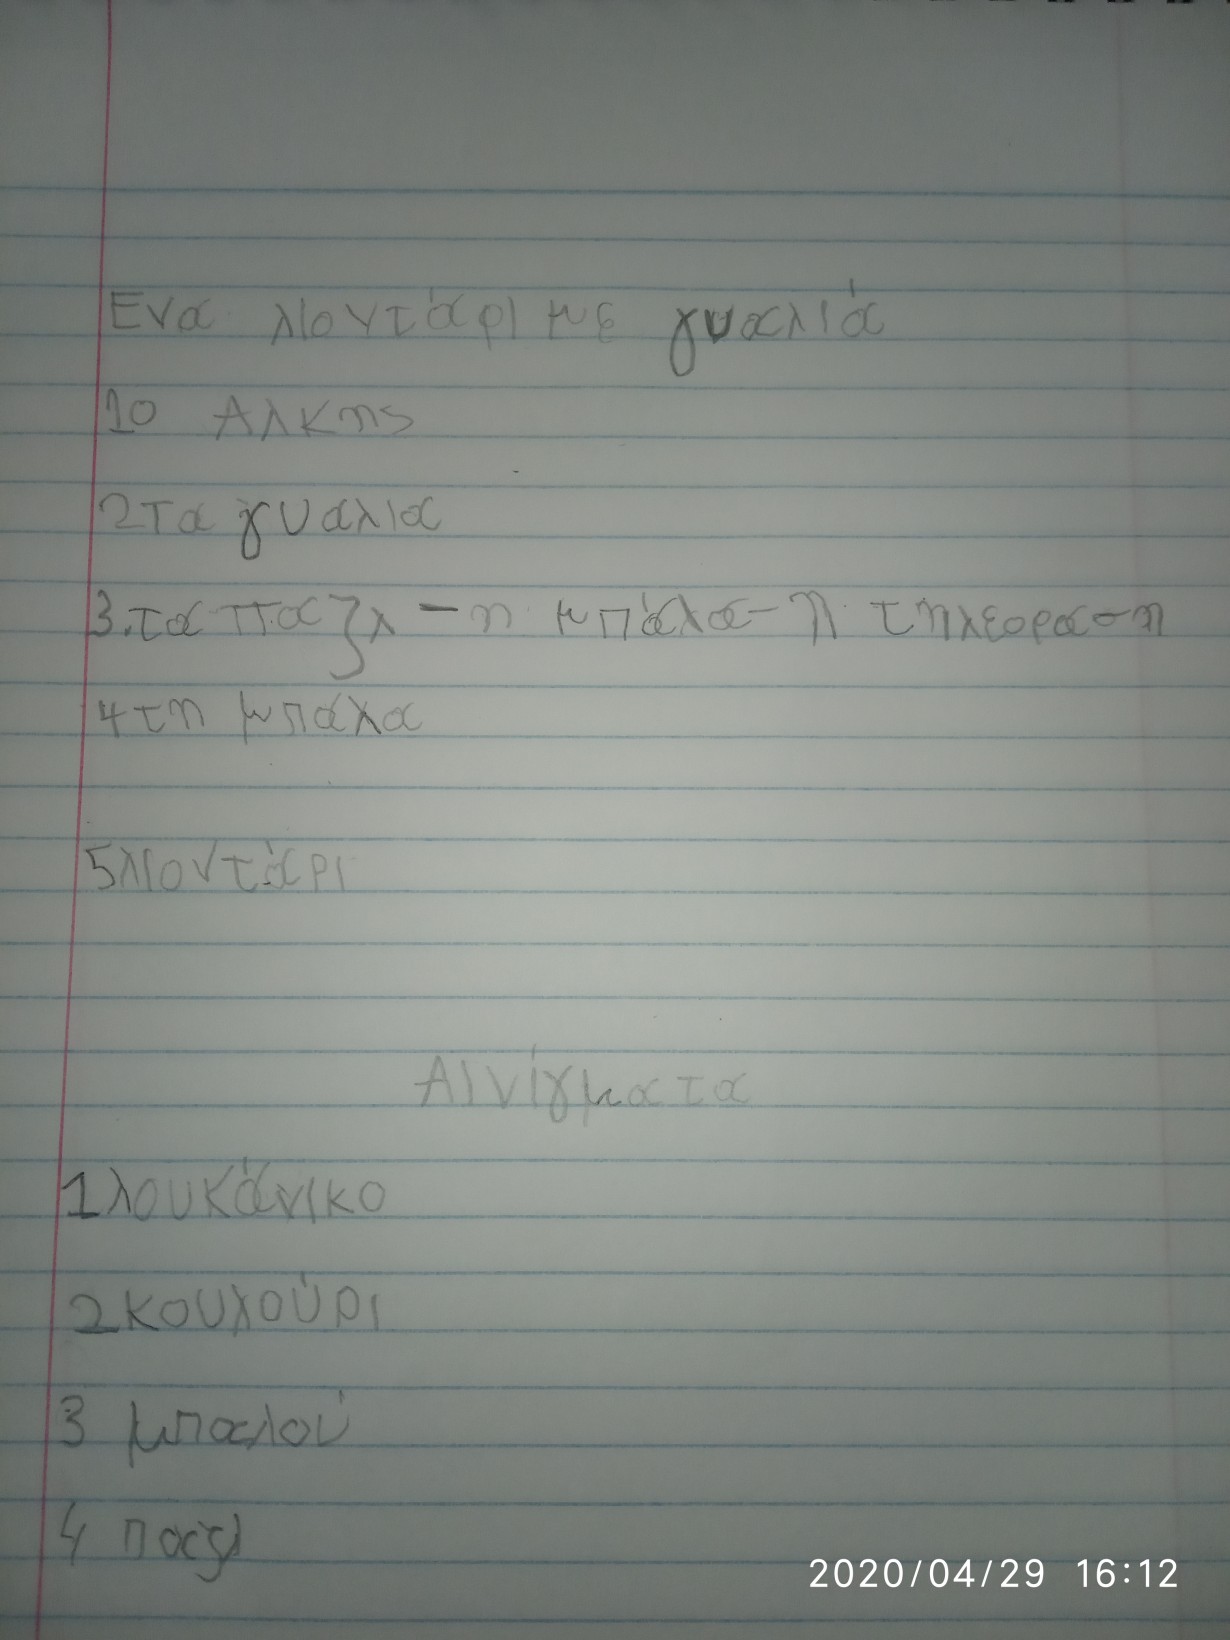 Ενα λιοντάρι με γυαλιά
1ο Αλκης
2τα γυαλια
3.τα παζλ - η μπάλα - η τηλεοραση
4τη μπάλα
5λιοντάρι
Αινίγματα
1λουκάνικο
2κουλούρι
3 μπαλού
4 παζλ
2020/04/29 16:12